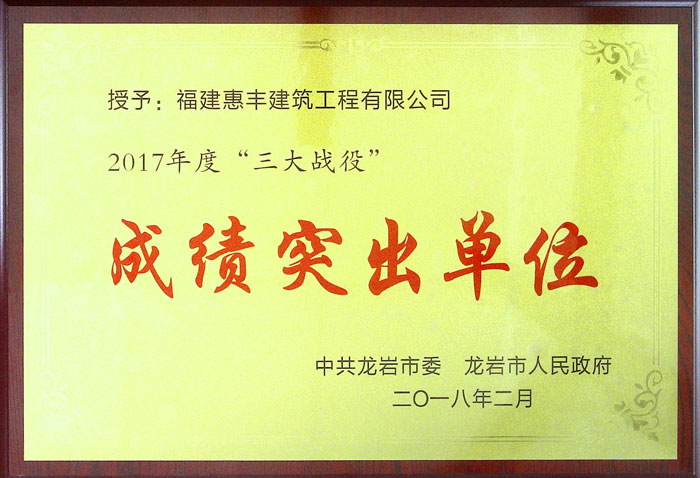 授予：福建惠丰建筑工程有限公司
2017年度“三大战役”
成绩突出单位
中共龙岩市委 龙岩市人民政府
二〇一八年二月